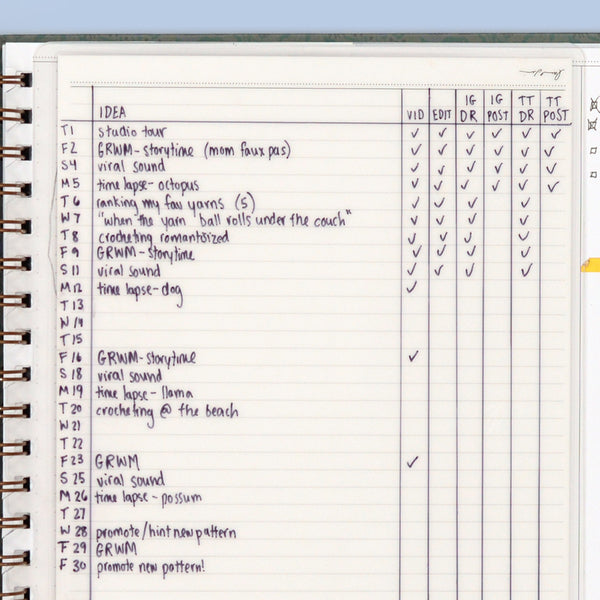 IDEA VID EDIT IG DR IG POST TT DR TT POST
T1 studio tour ✓ ✓ ✓ ✓ ✓ ✓
F2 GRWM-storytime (mom faux pas) ✓ ✓ ✓ ✓ ✓ ✓
S4 viral sound ✓ ✓ ✓ ✓ ✓ ✓
M5 time lapse-octopus ✓ ✓ ✓ ✓ ✓ ✓
T6 ranking my fav yarns (5) ✓ ✓ ✓ ✓
W7 "when the yarn ball rolls under the couch" ✓ ✓ ✓ ✓
T8 crocheting romanticized ✓ ✓ ✓ ✓
F9 GRWM-storytime ✓ ✓ ✓ ✓
S11 viral sound ✓ ✓ ✓ ✓
M12 time lapse-dog ✓
T13
W14
T15
F16 GRWM-storytime ✓
S18 viral sound
M19 time lapse-llama
T20 crocheting @ the beach
W21
T22
F23 GRWM ✓
S25 viral sound
M26 time lapse-possum
T27
W28 promote/hint new pattern
F29 GRWM
F30 promote new pattern!